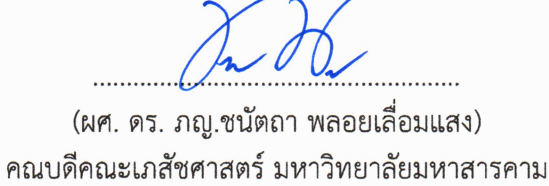 (ผศ. ดร. ภญ.ชนัตถา พลอยเลื่อมแสง)
คณบดีคณะเภสัชศาสตร์ มหาวิทยาลัยมหาสารคาม